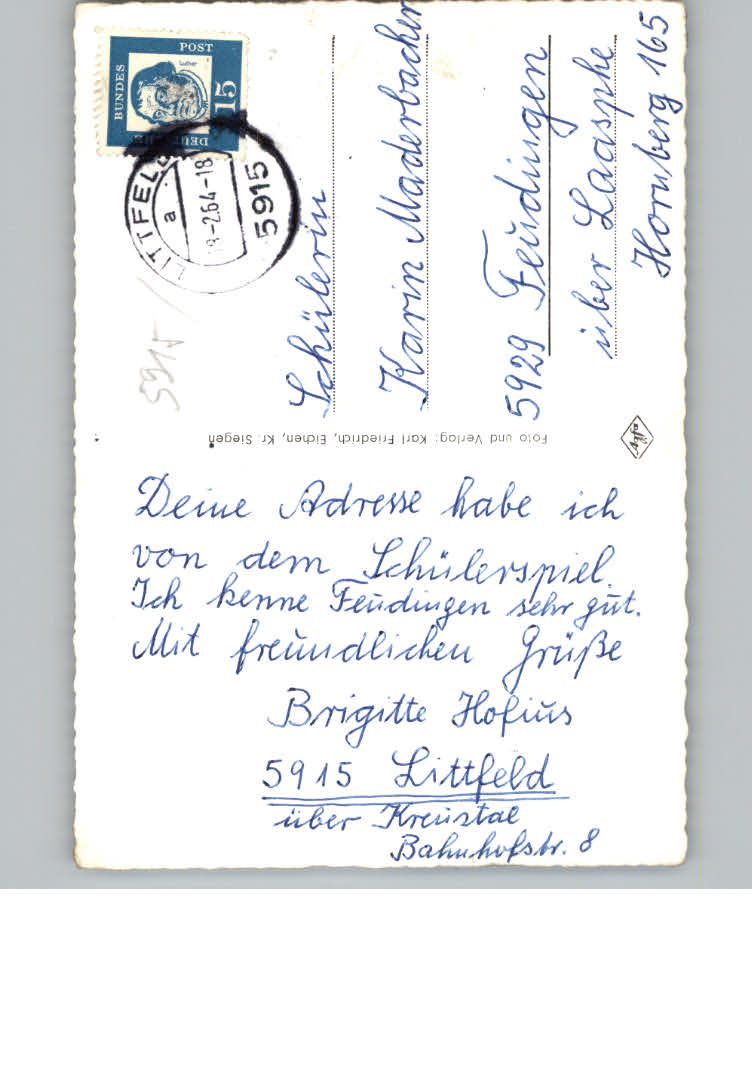 DEUTSCHE
BUNDES
POST
Luther
15
LITTFELD
a
-2.64-18
5915
5915
Schülerin
Karin Maderbacher
5929 Feudingen
über Laasphe
Hornberg 165
Foto und Verlag: Karl Friedrich, Eichen, Kr. Siegen
Agfa
Deine Adresse habe ich
von dem Schülerspiel.
Ich kenne Feudingen sehr gut.
Mit freundlichen Grüße
Brigitte Hofius
5915 Littfeld
über Kreuztal
Bahnhofstr. 8